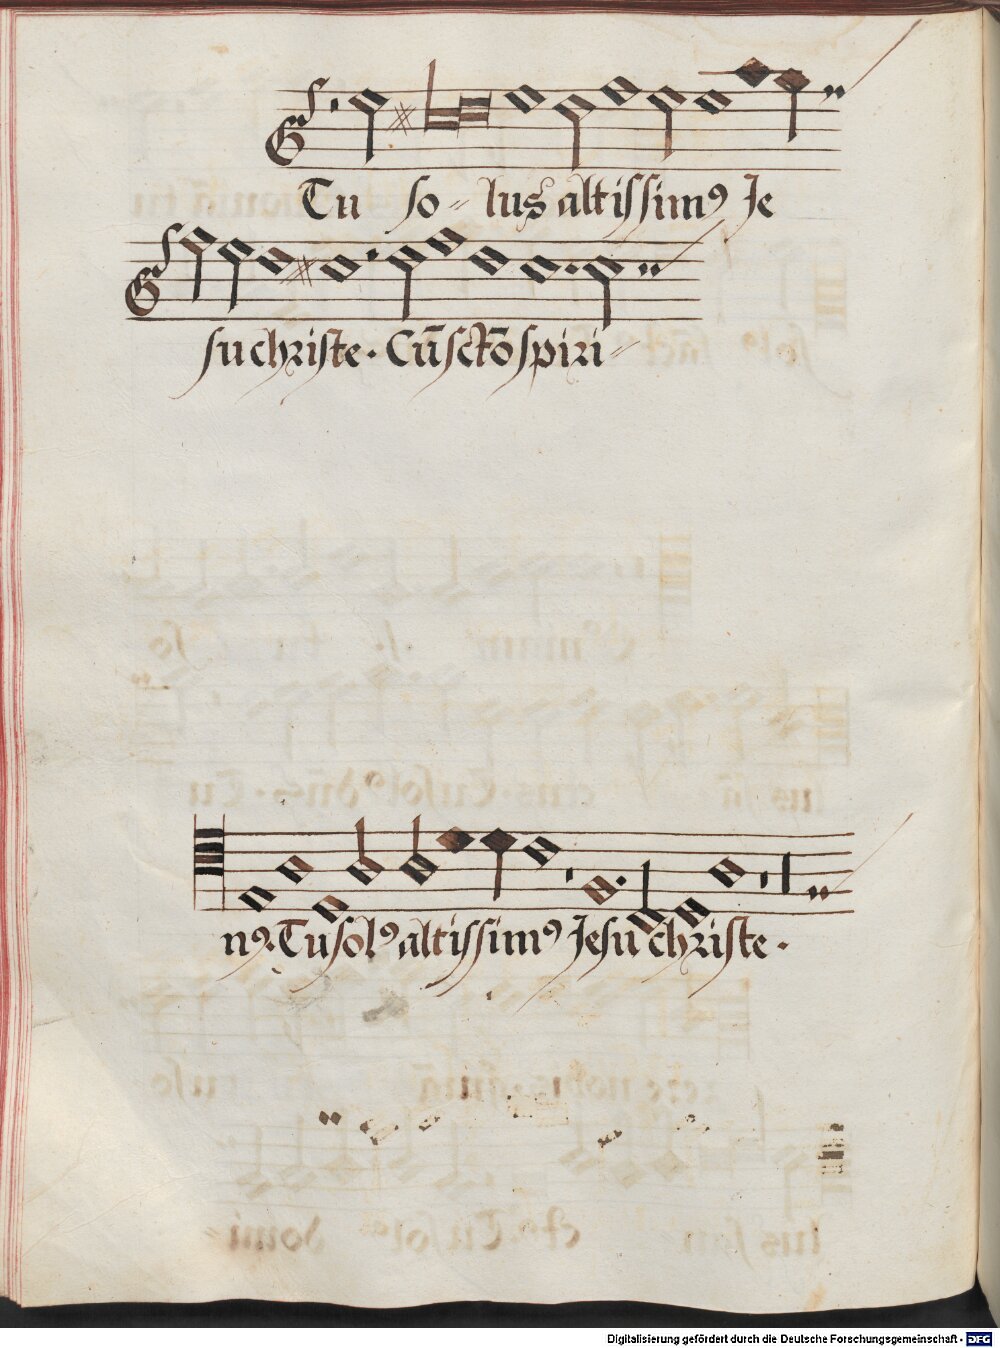 Tu so⸗ lus altissimꝰ Je
su christe · Cū sctō spiri⸗
nꝰ. Tu solꝰ altissimꝰ Jesu christe ·
Digitalisierung gefördert durch die Deutsche Forschungsgemeinschaft - DFG